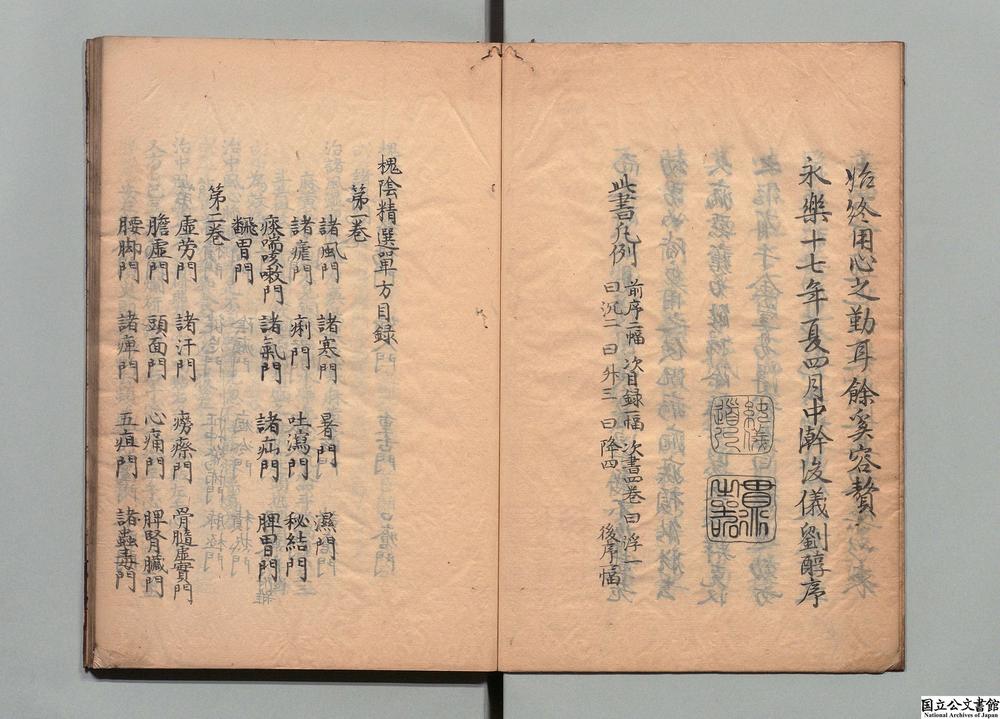 始終用心之勤耳餘奚容贅
永樂十七年夏四月中澣後儀劉醇序
此書凡例 前序二幅 次目録一幅 次書四巻 曰浮一
曰沉二 曰升三 曰降四 後序一幅
槐陰精選單方目録
第一巻
諸風門 諸寒門 暑門 濕門
諸瘧門 痢門 吐瀉門 秘結門
痰喘咳嗽門 諸氣門 諸疝門 脾胃門
翻胃門
第二巻
虚勞門 諸汗門 癆瘵門 骨髓虚實門
膽虚門 頭面門 心痛門 脾腎臟門
腰脚門 諸痺門 五疸門 諸蟲毒門
国立公文書館
National Archives of Japan